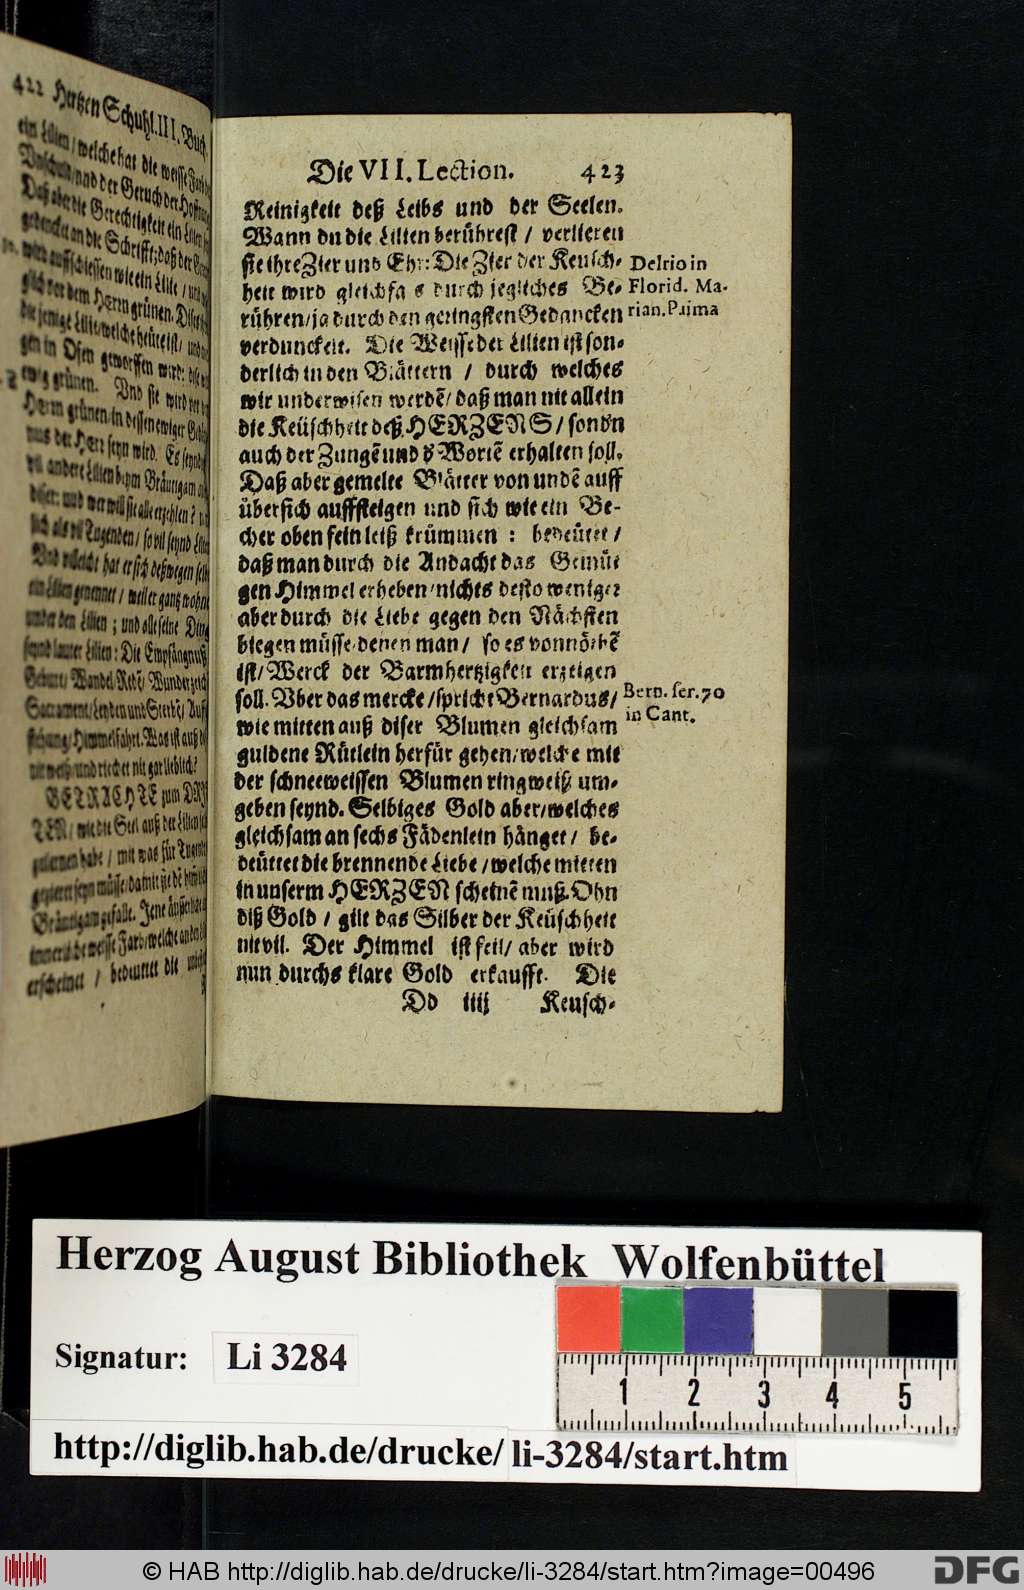 422 Hertzen Schuhl. III. Buch.
ein Lilien / welche hat die weisse Farb der
Vnschuld / und der Geruch der Hoffnung
Daß aber die Gerechtigkeit ein Lilien
gedencket an die Schrifft; daß der
wird auffschiessen wie ein Lilie / und
vor dem Herrn grünen. Diser
die jenige Lilie / welche heüte ist / und
gen in Ofen geworffen wird: dise
ewig grünen. Vnd sie wird vor
Herrn grünen / in dessen ewiger
nus der Herr seyn wird. Es seynd
vil andere Lilien beym Bräutigam
diser: und wer will sie alle erzehlen?
lich als vil Tugenden / so vil seynd Lilien
Vnd villeicht hat er sich deßwegen selbst
ein Lilien genennet / weil er gantz wohnet
under den Lilien; und alle seine Ding
seynd lauter Lilien: Die Empfängnuß
Geburt / Wandel / Redē / Wunderzeich
Sacrament / Leyden und Sterbē / Auff
stehung / Himmelfahrt. Was ist auß
nit weiß / und riechet nit gar lieblich?
BETRACHTE zum DRIT
TEN / wie die Seel auß der Lilien
gelernen habe / mit was für Tugend
gezieret seyn müsse / damit sie dē himl
Bräutigam gefalle. Jene äusserliche
immerliche weisse Farb / welche an der
erscheinet / bedeuttet die
Die VII. Lection. 423
Reinigkeit deß Leibs und der Seelen.
Wann du die Lilien berührest / verlieren
sie ihre Zier und Ehr: Die Zier der Keusch-
heit wird gleichfals durch jegliches Be-
rühren / ja durch den geringsten Gedancken
verdunckelt. Die Weisse der Lilien ist son-
derlich in den Blättern / durch welches
wir underwisen werdē / daß man nit allein
die Keüschheit deß HERZENS / sondn
auch der Zungē und d' Wortē erhalten soll.
Daß aber gemelte Blätter von undē auff
übersich auffsteigen und sich wie ein Be-
cher oben fein leiß krümmen : bedeütet /
daß man durch die Andacht das Gemüt
gen Himmel erheben / nichts desto weniger
aber durch die Liebe gegen den Nächsten
biegen müsse / denen man / so es vonnöthē
ist / Werck der Barmhertzigkeit erzeigen
soll. Vber das mercke / spricht Bernardus /
wie mitten auß diser Blumen gleichsam
guldene Rütlein herfür gehen / welche mit
der schneeweissen Blumen ringweiß um-
geben seynd. Selbiges Gold aber / welches
gleichsam an sechs Fädenlein hänget / be-
deüttet die brennende Liebe / welche mitten
in unserm HERZEN scheinē muß. Ohn
diß Gold / gilt das Silber der Keüschheit
nit vil. Der Himmel ist feil / aber wird
nun durchs klare Gold erkaufft. Die
Dd iiij Keusch-
Delrio in
Florid. Ma-
rian. Prima
Bern. ser. 70
in Cant.
Herzog August Bibliothek Wolfenbüttel
Signatur: Li 3284
1 2 3 4 5
http://diglib.hab.de/drucke/ li-3284/start.htm
© HAB http://diglib.hab.de/drucke/li-3284/start.htm?image=00496
DFG